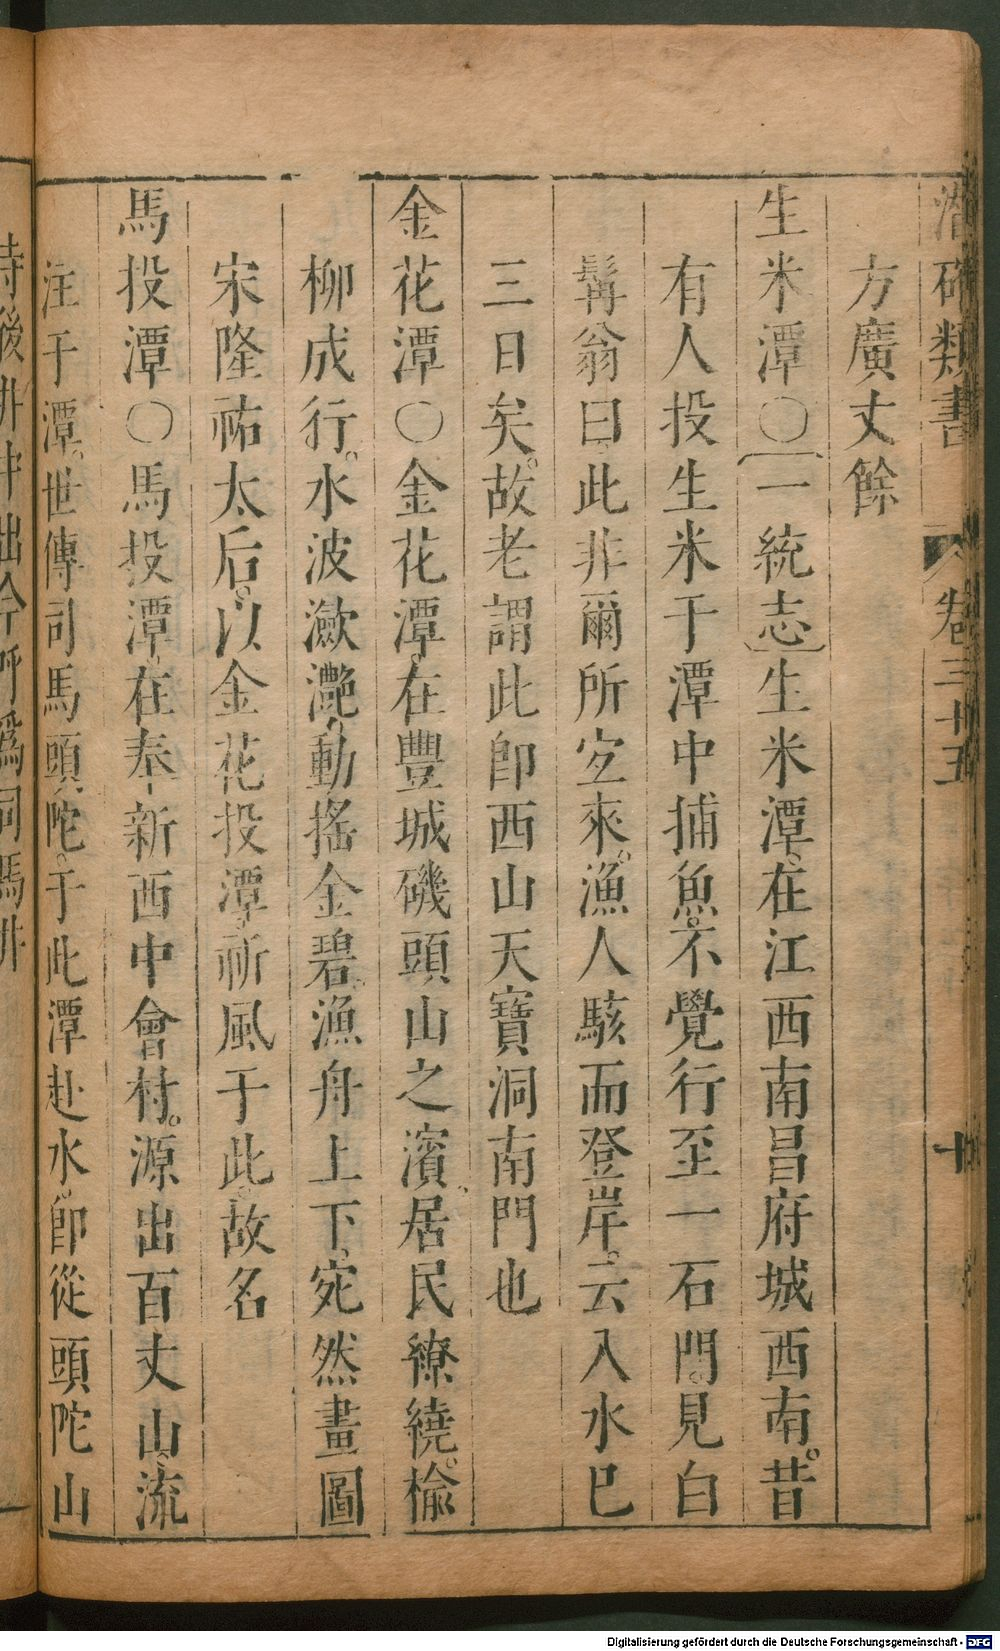 潛確類書 卷三十五 十
方廣丈餘
生米潭○一統志生米潭在江西南昌府城西南。昔
有人投生米于潭中捕魚。不覺行至一石門。見白
髯翁曰此非爾所宜來。漁人駭而登岸。云入水已
三日矣。故老謂此卽西山天寶洞南門也
金花潭○金花潭在豐城磯頭山之濱。居民繚繞。榆
柳成行。水波瀲灧動搖金碧。漁舟上下宛然畫圖
宋隆祐太后。以金花投潭祈風于此。故名
馬投潭○馬投潭在奉新西中會村。源出百丈山。流
注于潭。世傳司馬頭陀。于此潭赴水。卽從頭陀山
Digitalisierung gefördert durch die Deutsche Forschungsgemeinschaft - DFG